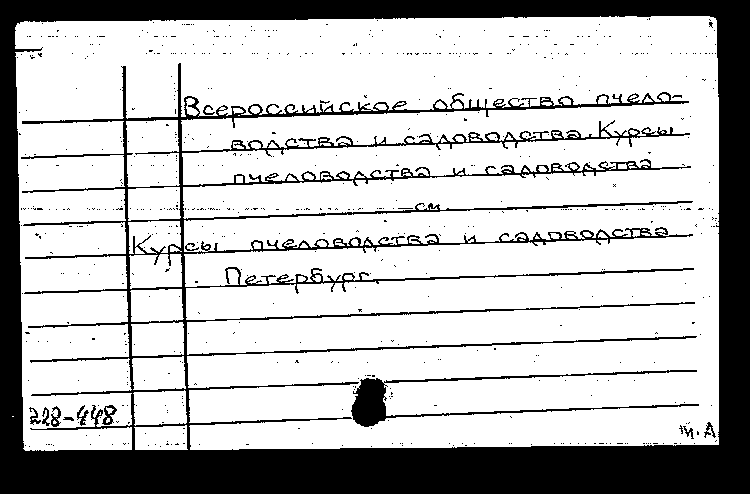 Всероссийское общество пчело-
водства и садоводства. Курсы
пчеловодства и садоводства
см.
Курсы пчеловодства и садоводства
Петербург.
228-448